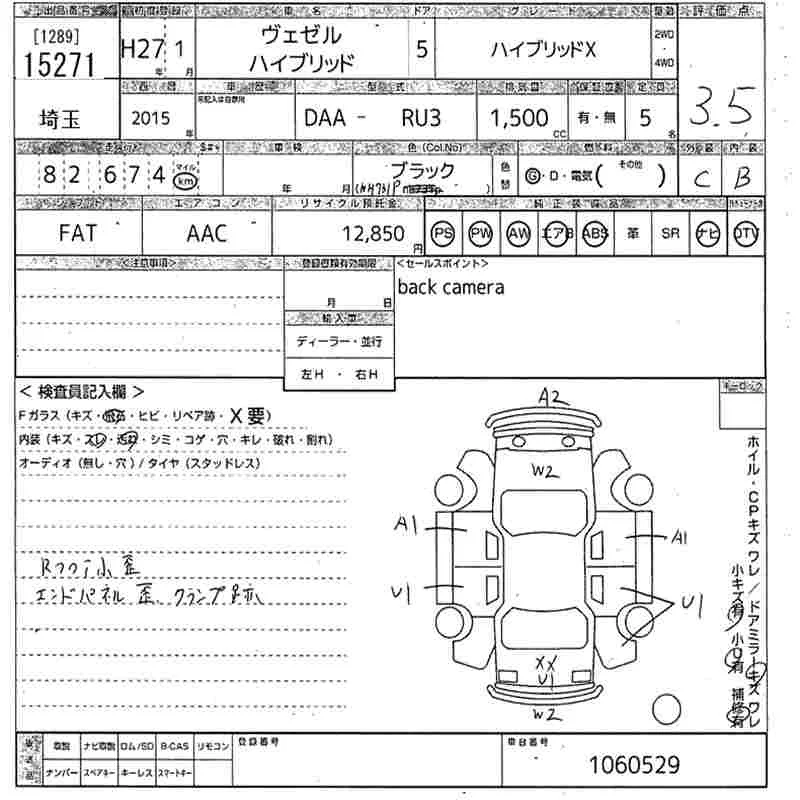 出品番号 初度登録 車名 ドア グレード 駆動 評価点
[1289]
15271
H27年 1月
ヴェゼル
ハイブリッド
5
ハイブリッドX
2WD
・
4WD
3.5
西暦 車歴 型式 排気量 保証書 定員
埼玉
2015年
DAA - RU3
1,500cc
有・無
5名
走行 車検 色(Col.No) 燃料 外装 内装
82,674 マイル km
年 月
ブラック
色替
G・D・電気( その他 )
C
B
シフト エアコン リサイクル預託金 純正装備品
FAT
AAC
12,850円
PS PW AW エアB ABS 革 SR ナビ DTV
<注意事項>
登録書類有効期限
<セールスポイント>
back camera
月 日
輸入車
ディーラー・並行
左H ・ 右H
キーロック
< 検査員記入欄 >
Fガラス (キズ・飛石・ヒビ・リペア跡・X要)
内装 (キズ・スレ・汚れ・シミ・コゲ・穴・キレ・破れ・割れ)
オーディオ (無し・穴) / タイヤ (スタッドレス)
Rフロア小歪
エンドパネル歪、クランプ跡
A2
W2
A1
A1
U1
U1
XX
U1
W2
ホイル・CPキズ ワレ / ドアミラーキズ ワレ
小キズ有 小凹有 補修有
取説 ナビ取説 ロム/SD B-CAS リモコン
ナンバー スペアキー キーレス スマートキー
登録番号
車台番号
1060529